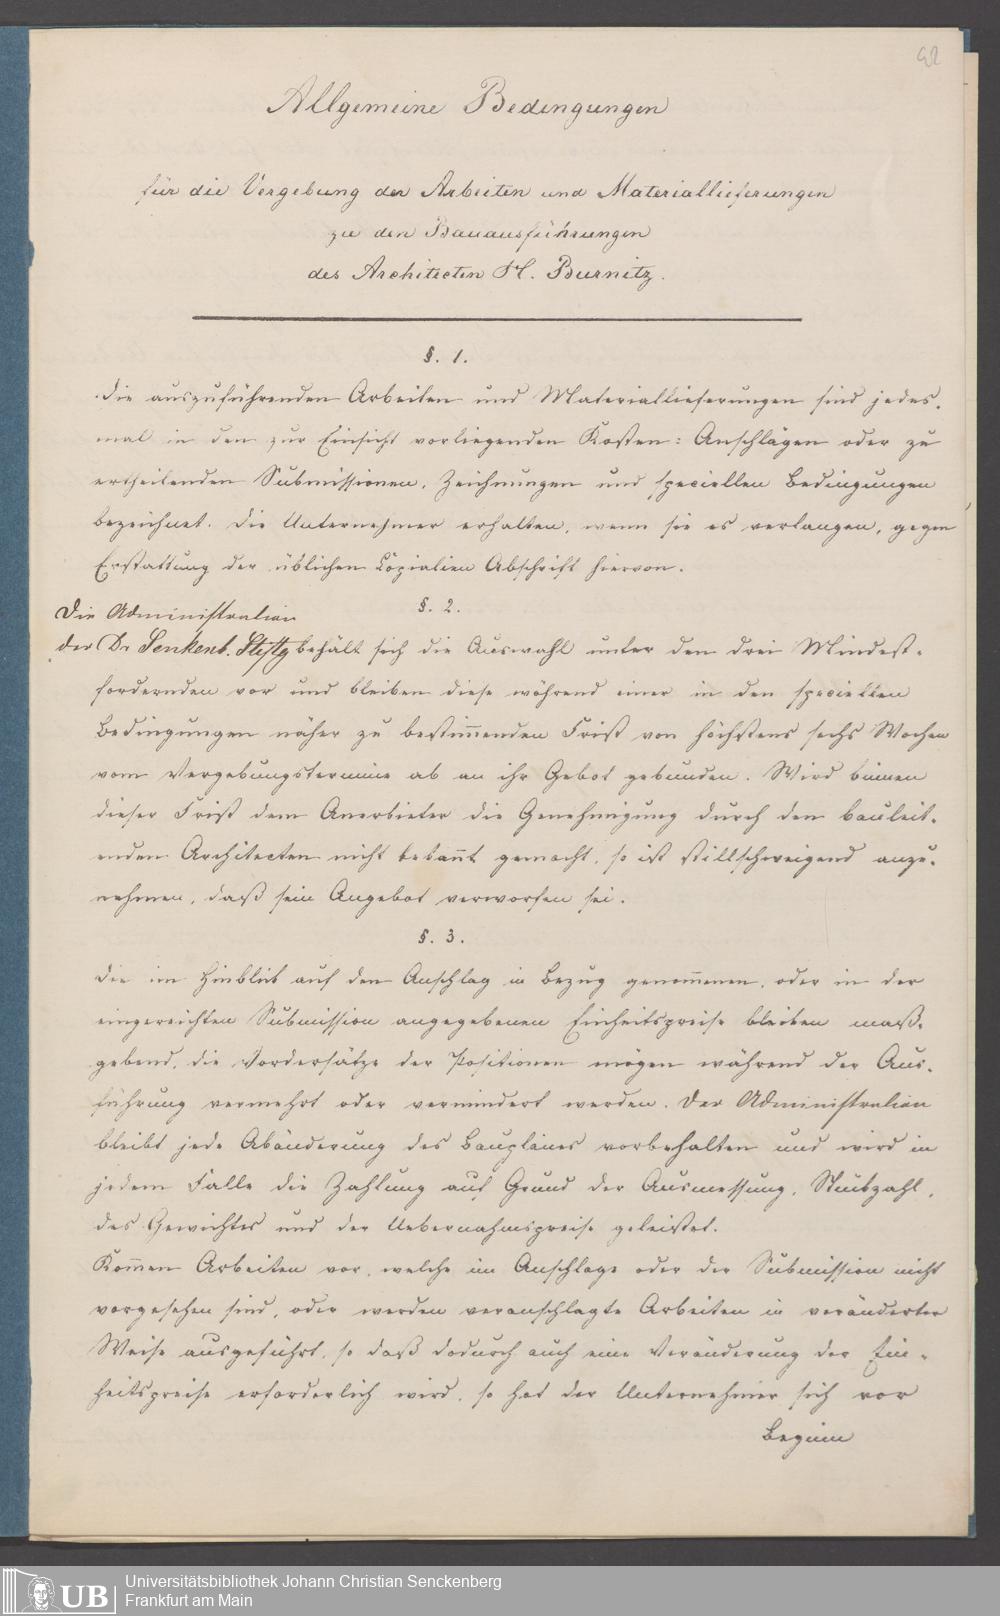 42
Allgemeine Bedingungen
für die Vergebung der Arbeiten und Materiallieferungen
zu den Bauausführungen
des Architecten H. Burnitz.
§. 1.
Die auszuführenden Arbeiten und Materiallieferungen sind jedes-
mal in den zur Einsicht vorliegenden Kosten: Anschlägen oder zu
ertheilenden Submissionen, Zeichnungen und speciellen Bedingungen
bezeichnet. Die Unternehmer erhalten, wenn sie es verlangen, gegen
Erstattung der üblichen Copialien Abschrift hiervon.
§. 2.
Die Administration
der Dr Senkenb. Stiftg behält sich die Auswahl unter den drei Mindest-
fordernden vor und bleiben diese während einer in den speciellen
Bedingungen näher zu bestim̄enden Frist von höchstens sechs Wochen
vom Vergebungstermine ab an ihr Gebot gebunden. Wird binnen
dieser Frist dem Anerbieter die Genehmigung durch den bauleit-
enden Architecten nicht bekan̄t gemacht, so ist stillschweigend anzu-
nehmen, daß sein Angebot verworfen sei.
§. 3.
Die im Hinblick auf den Anschlag in Bezug genom̄enen, oder in der
eingereichten Submission angegebenen Einheitspreise bleiben maß-
gebend, die Vordersätze der Positionen mögen während der Aus-
führung vermehrt oder vermindert werden. Der Administration
bleibt jede Abänderung des Bauplanes vorbehalten und wird in
jedem Falle die Zahlung auf Grund der Ausmessung, Stückzahl,
des Gewichtes und der Uebernahmspreise geleistet.
Kom̄en Arbeiten vor, welche im Anschlage oder der Submission nicht
vorgesehen sind, oder werden veranschlagte Arbeiten in veränderter
Weise ausgeführt, so daß dadurch auch eine Veränderung der Ein-
heitspreise erforderlich wird, so hat der Unternehmer sich vor
Beginn
UB
Universitätsbibliothek Johann Christian Senckenberg
Frankfurt am Main